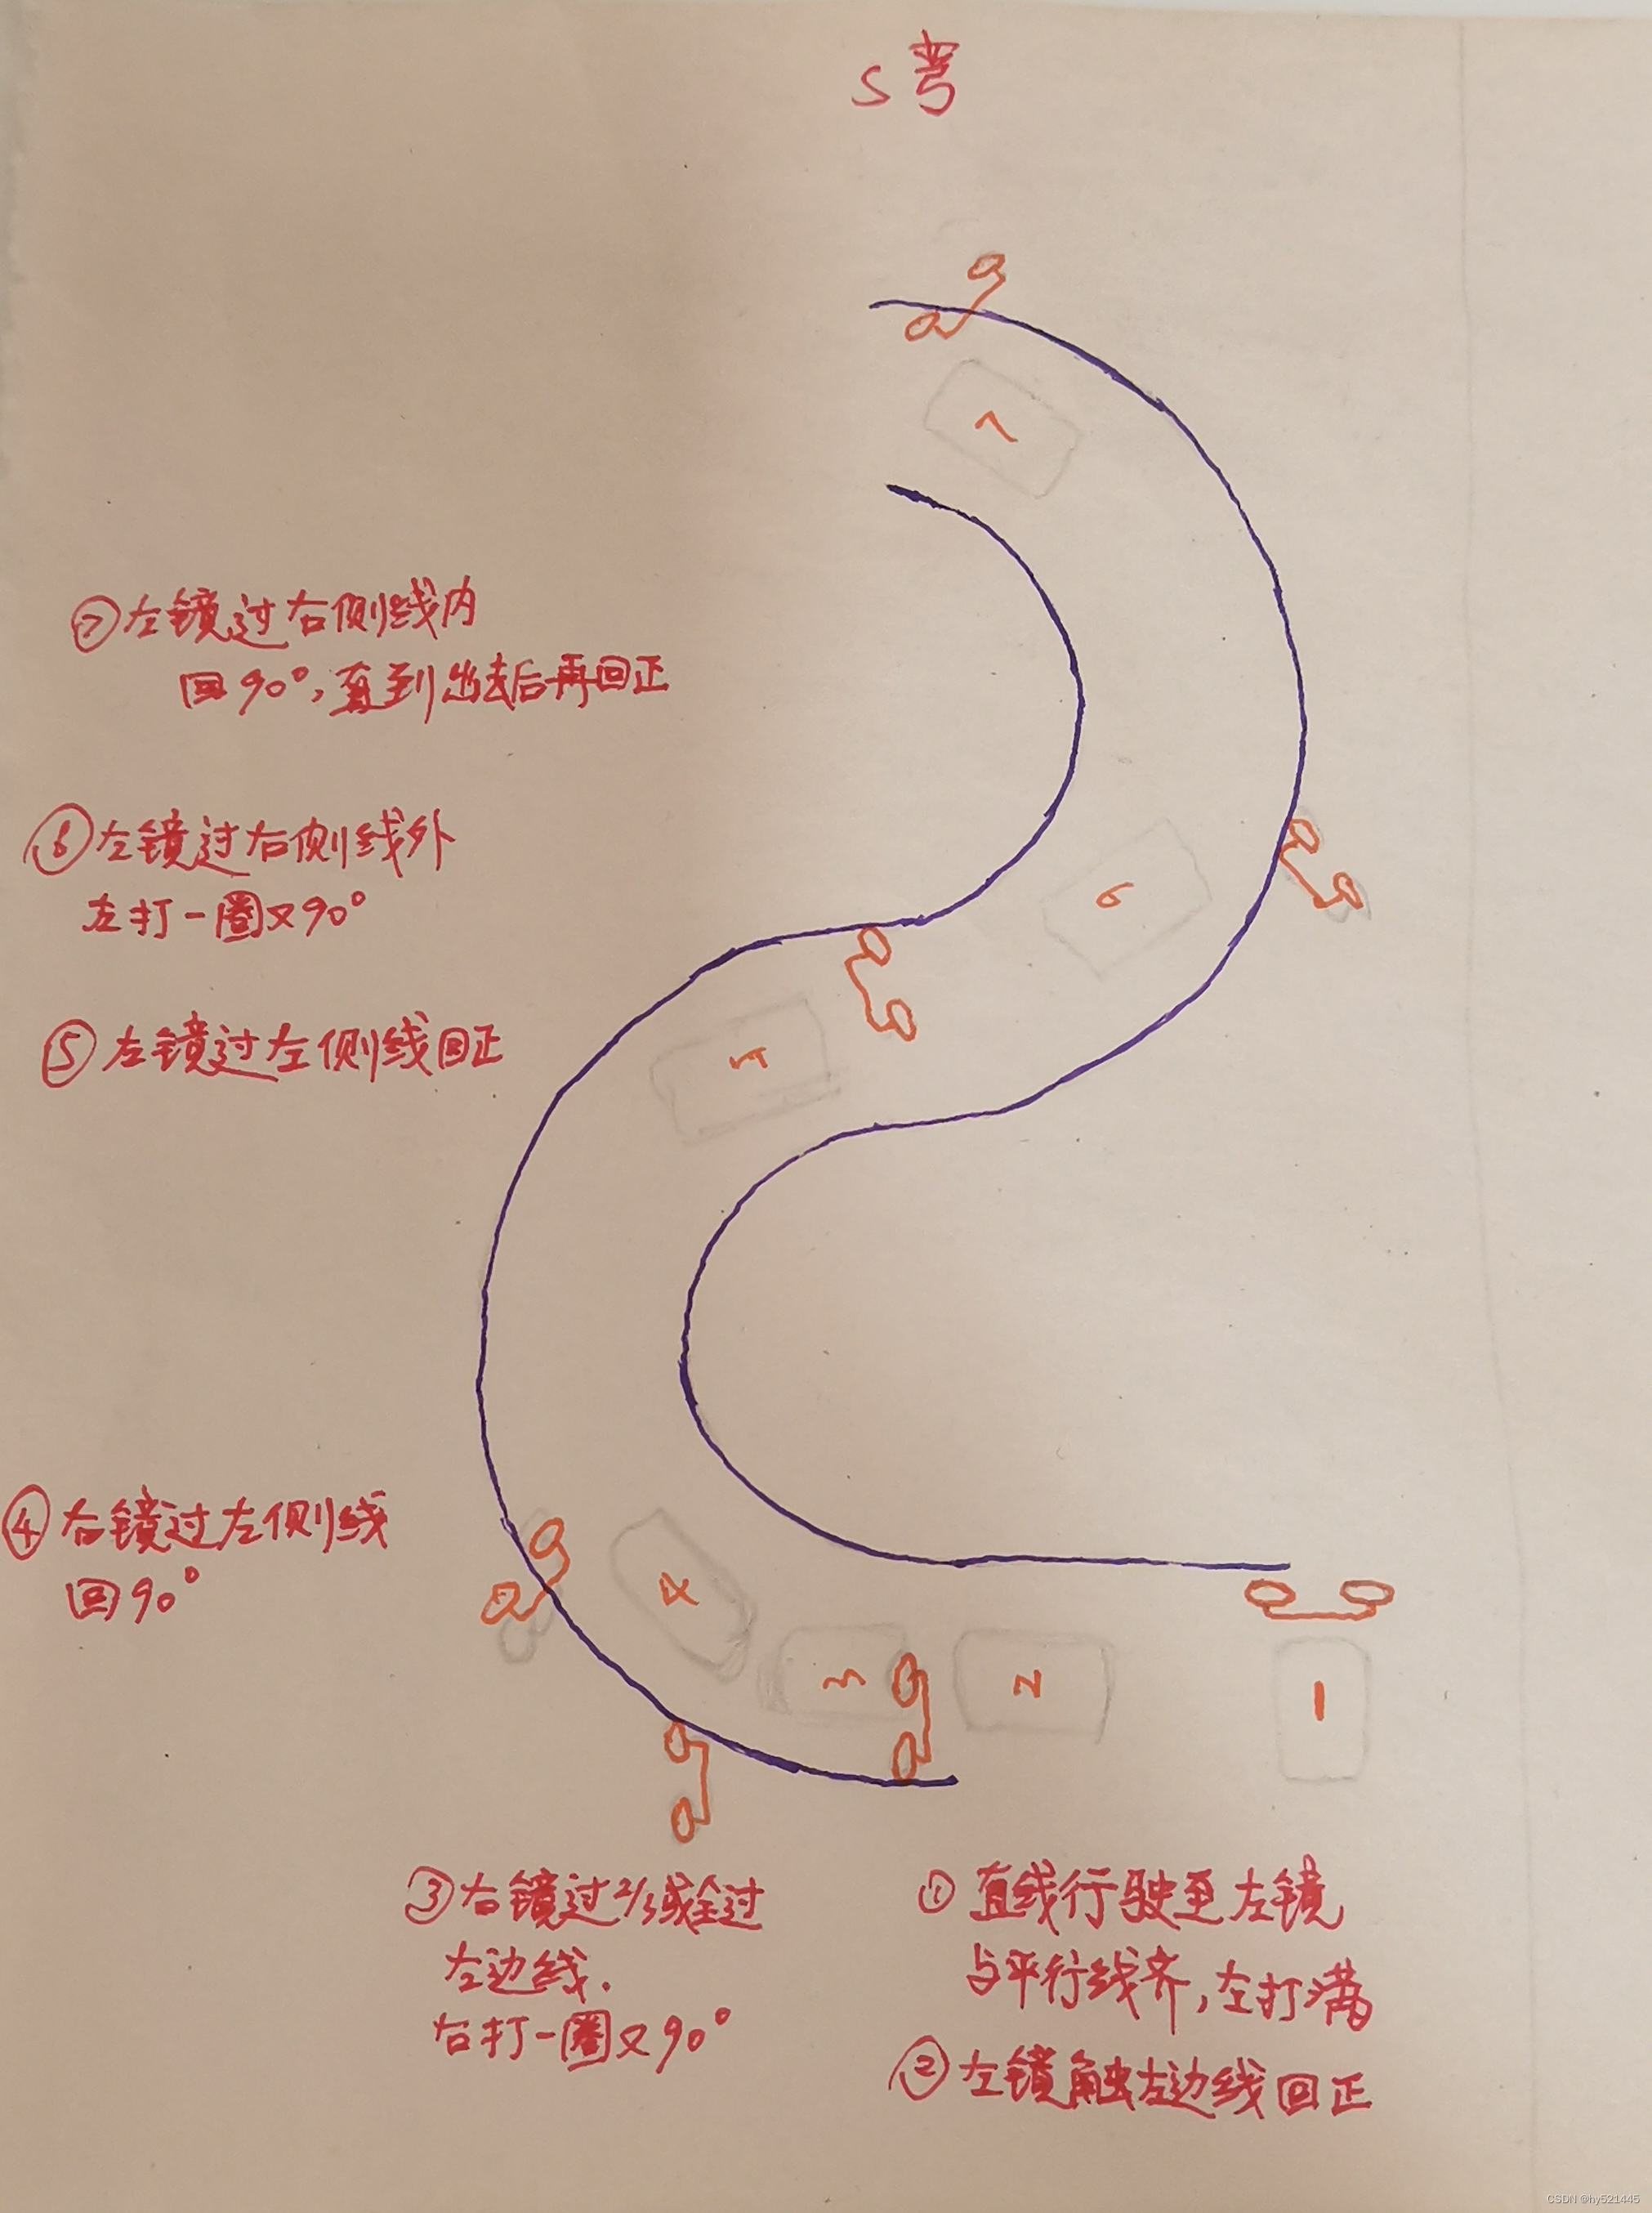 S弯
7
⑦左镜过右侧线内
回90°,直到出去后再回正
⑥左镜过右侧线外
左打一圈又90°
6
⑤左镜过左侧线回正
5
④右镜过左侧线
回90°
4
3
2
1
③右镜过2/3或全过
左边线.
右打一圈又90°
①直线行驶至左镜
与平行线齐,左打满
②左镜触左边线回正
CSDN @hy521445